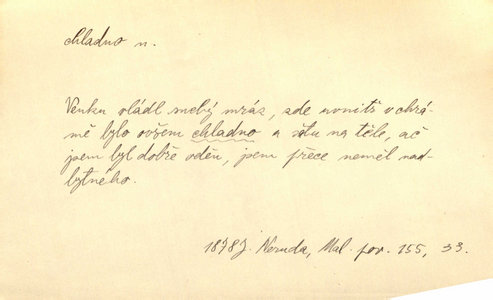 chladno n.
Venku vládl suchý mráz, zde uvnitř v chrá-
mě bylo ovšem chladno a sótu na těle, ač
jsem byl dobře oděn, jsem přece neměl nad-
bytného.
1878 J. Neruda, Mal. pov. 155, 33.